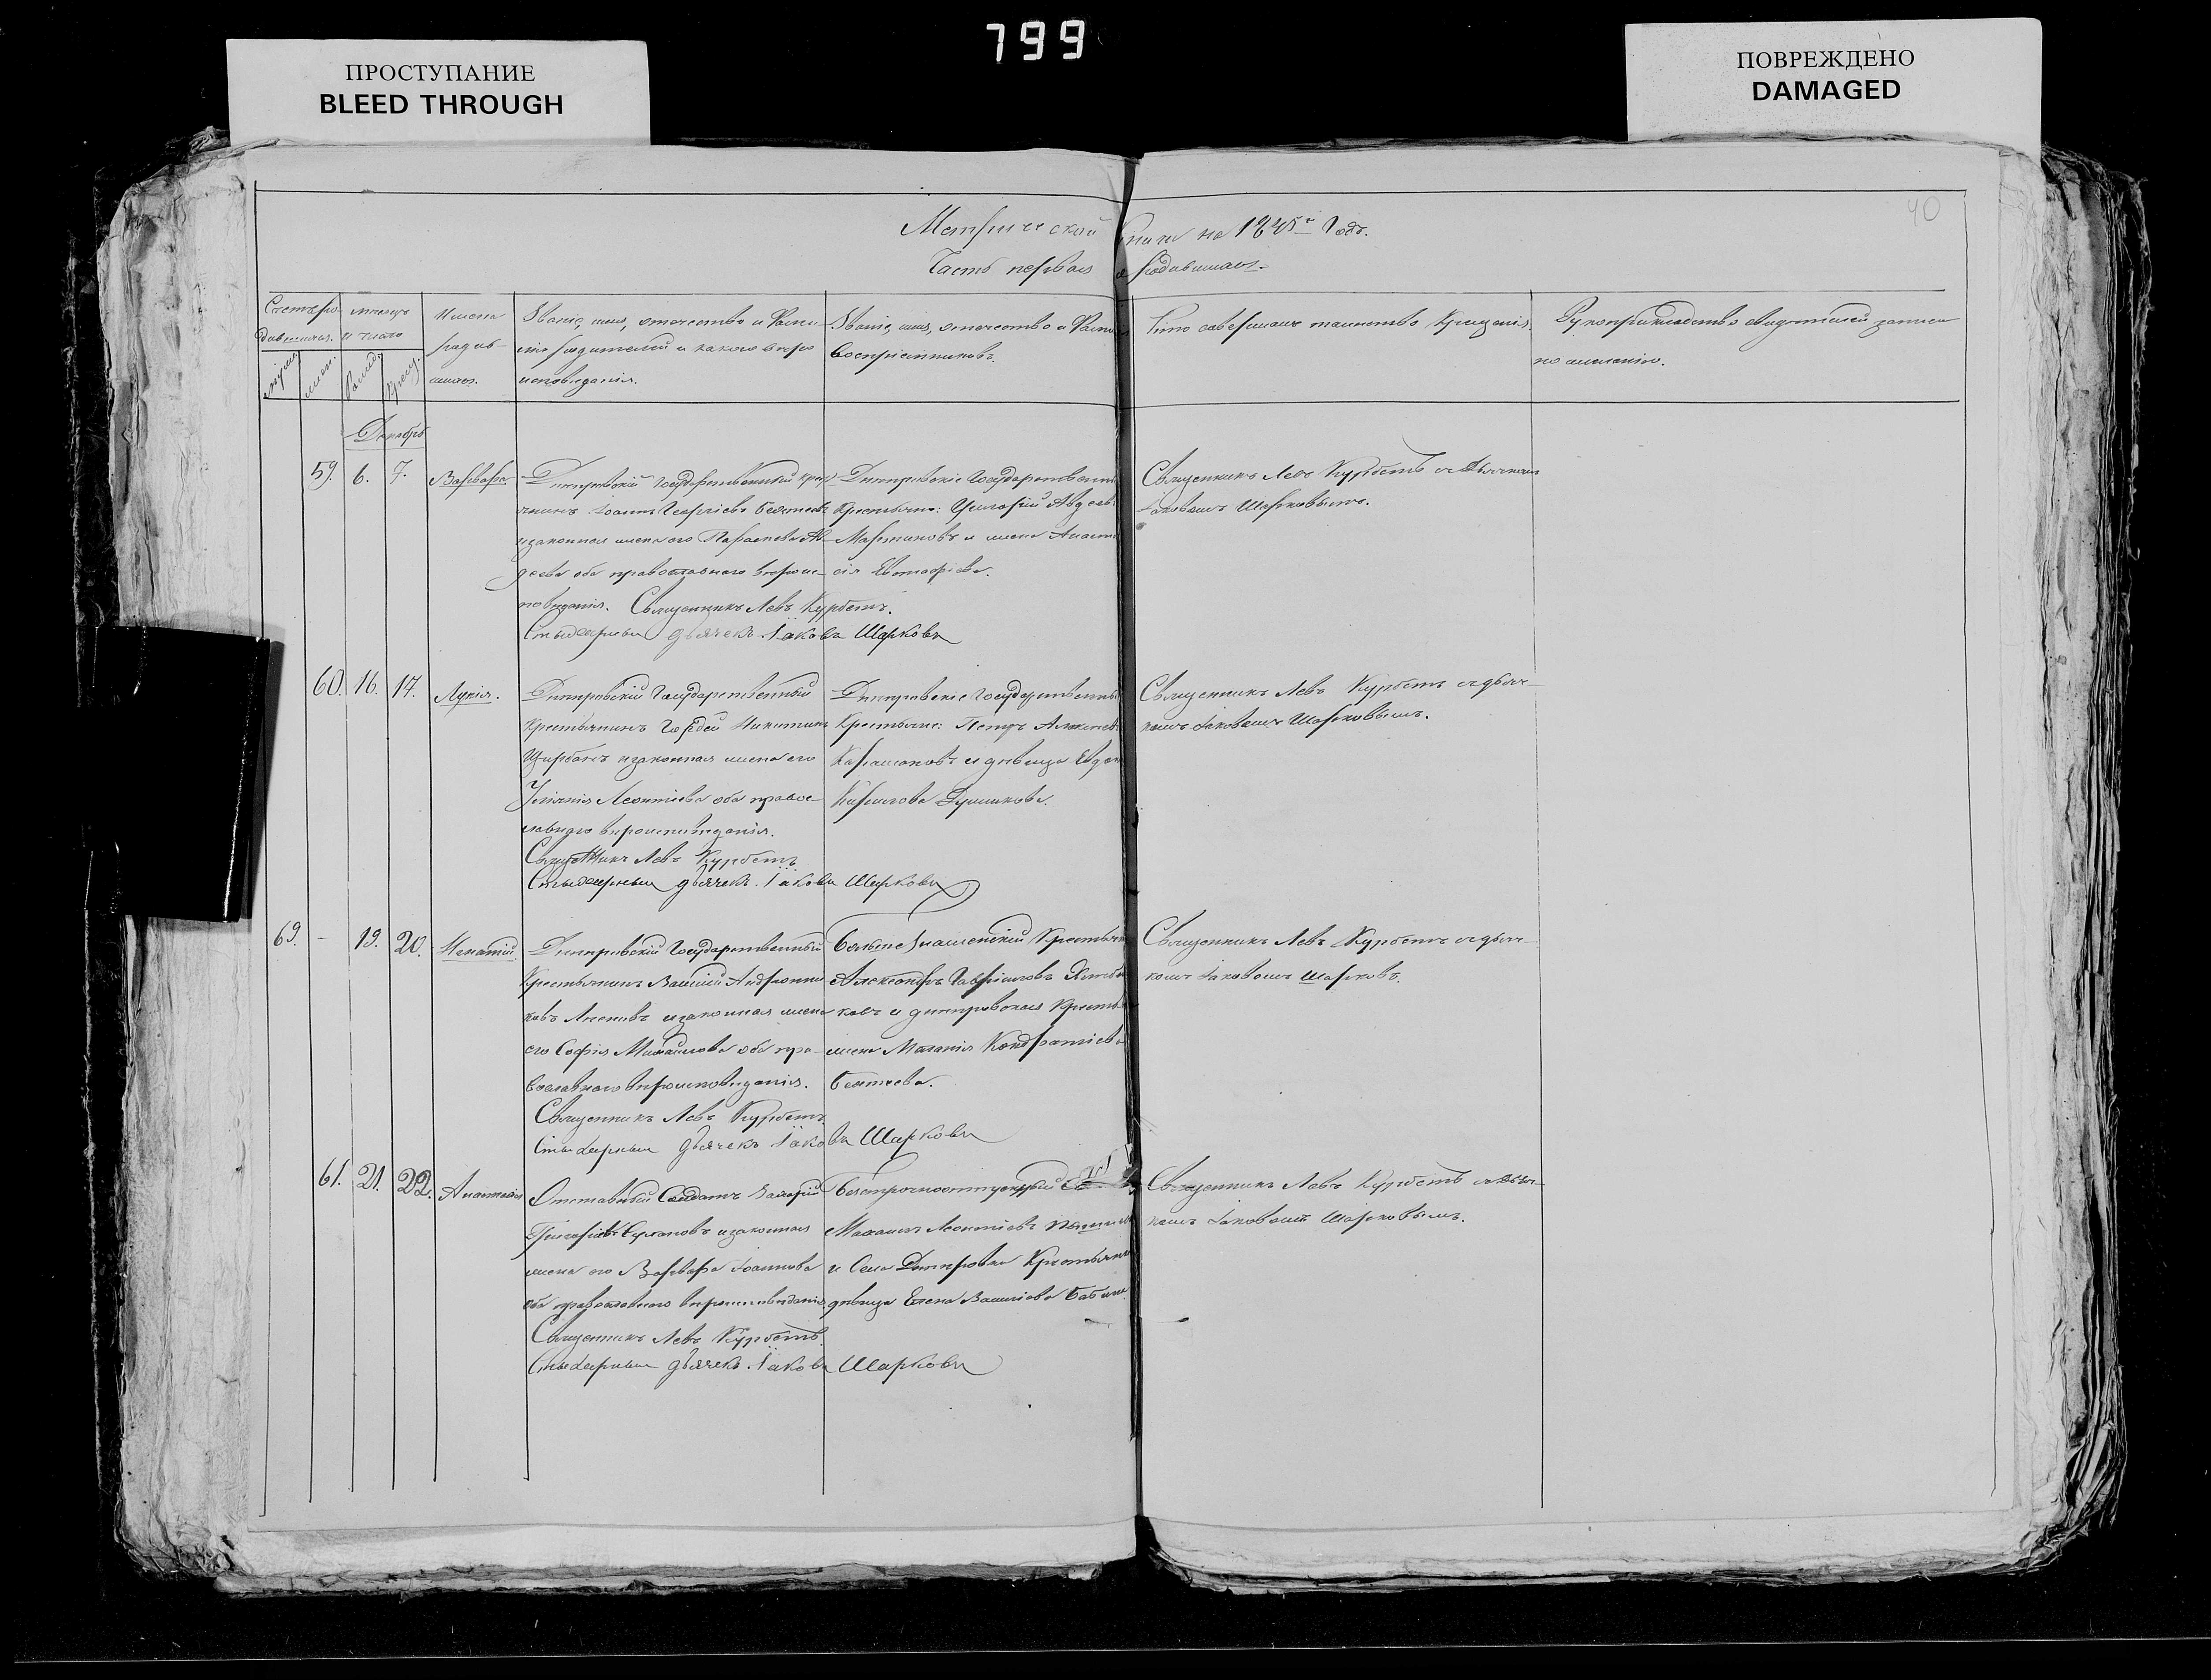 799
ПРОСТУПАНИЕ
BLEED THROUGH
ПОВРЕЖДЕНО
DAMAGED
40
Метрической книги на 1845й Годъ.
Часть первая о родившихся.
Счетъ ро-
дившихся.
мужес.
женс.
месяцъ
и число
Рожд.
Крещ.
Имена
родив-
шихся.
Званіе, имя, отечество и Фами-
лія родителей и какого веро
исповеданія.
Званіе, имя, отечество и Фами
Воспріемниковъ.
Кто совершалъ таинство Крещенія.
Рукоприкладство свидетелей записи
по желанію.
Декабрь
59. 6. 7. Варвара.
Днепровскій Государственный крес
янинъ Іоаннъ Георгіевъ
изаконная жена его Параскева Ав
деева оба православного вероис
поведанія. Священникъ Левъ Курбетъ.
дьячекъ Іаковъ Шарковъ
Днепровскіе Государственн
Крестьяне: Григорій Авдеевъ
Мартиновъ и жена Анаст
сія
Священникъ Левъ Курбетъ съ Дьячкомъ
Іаковомъ Шарковымъ.
60. 16. 17. Лукія.
Днепровскій Государственный
Крестьянинъ Гордей Никитинъ
Щербанъ изаконная жена его
Леонтіева оба правос
лавного вероисповеданія.
Священникъ Левъ Курбетъ
дьячекъ Іаковъ Шарковъ
Днепровскіе Государственны
Крестьяне: Петръ Алексеевъ
и девица Евдок
Кирилова
Священникъ Левъ Курбетъ съ дьяч-
комъ Іаковомъ Шарковымъ.
69. - 19. 20. Игнатій.
Днепровскій Государственный
Крестьянинъ Василій Андрони
ковъ изаконная жена
его Софія Михайлова оба пра-
вославного вероисповеданія.
Священникъ Левъ Курбетъ
дьячекъ Іаковъ Шарковъ
Больше Знаменскій Крестьян
Александръ Гавріиловъ
ковъ и днепровская Крестья
жена Маланія Кондратіева
Священникъ Левъ Курбетъ съ дьяч-
комъ Іаковомъ Шарковъ.
61. 21. 22. Анастасія
Отставный Солдатъ Захарій
Григоріевъ изаконная
жена его Варвара Іоаннова
оба православного вероисповеданія.
Священникъ Левъ Курбетъ
дьячекъ Іаковъ Шарковъ
Безсрочноотпускный
Михаилъ Леонтіевъ
и Села Днепровки Крестьянка
девица Елена Василіева
Священникъ Левъ Курбетъ съ дьяч-
комъ Іаковомъ Шарковымъ.